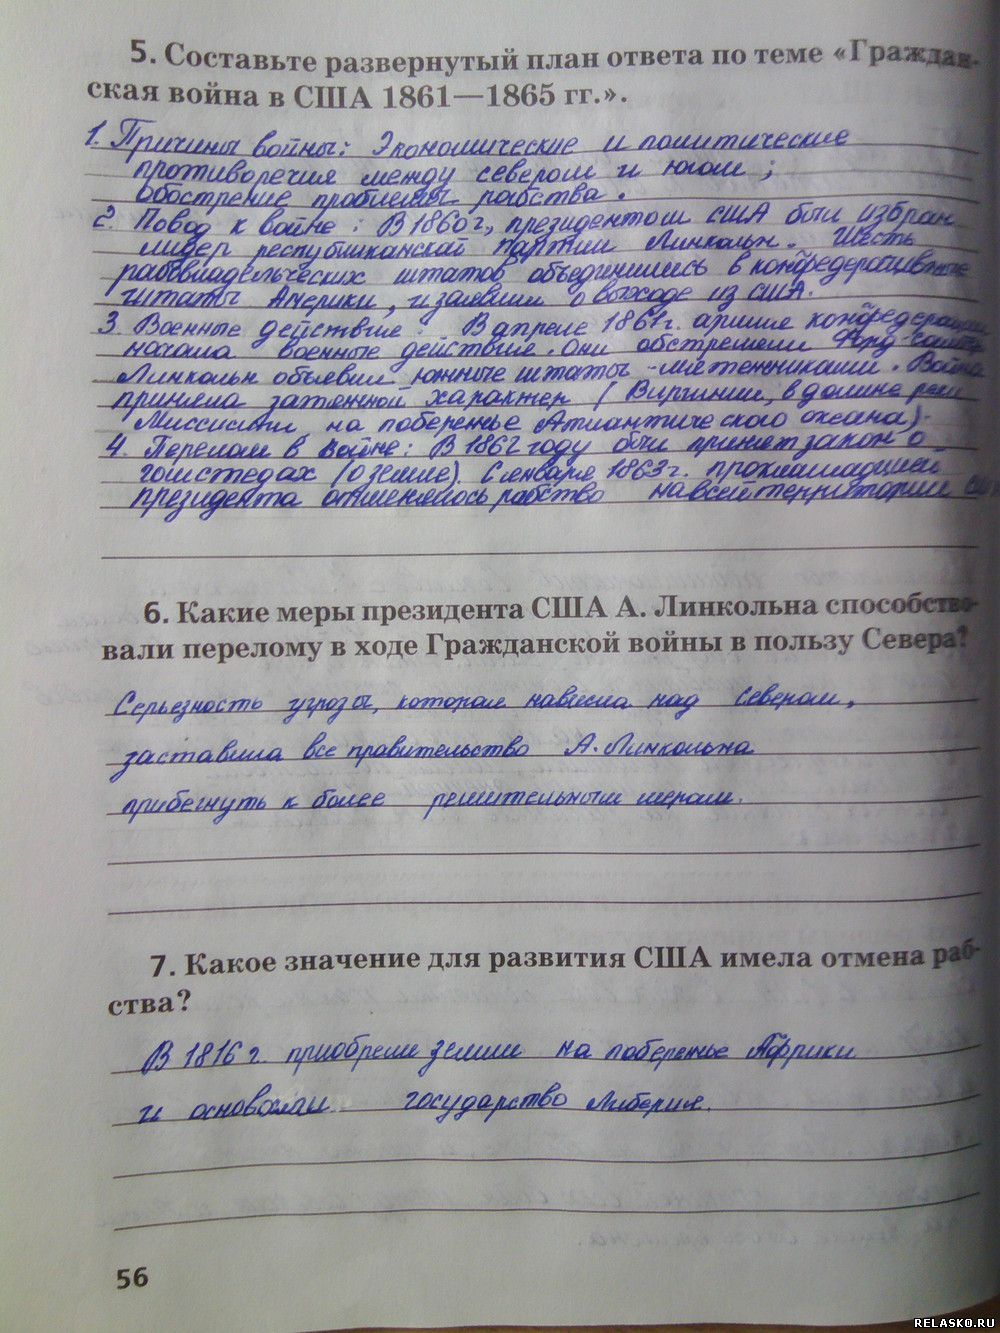 5. Составьте развернутый план ответа по теме «Граждан-
ская война в США 1861—1865 гг.».
1. Причины войны: Экономические и политические
противоречия между севером и югом;
обострение проблемы рабства.
2. Повод к войне: В 1860 г, президентом США был избран
лидер республиканской партии Линкольн. Шесть
рабовладельческих штатов объединились в конфедеративные
штаты Америки, и заявили о выходе из США.
3. Военные действие: В апреле 1861 г. армия конфедерации
начала военные действия. Они обстреляли Форд-
Линкольн объявил южные штаты - мятежниками. Война
приняла затяжной характер (Виргинии, в долине реки
Миссисипи, на побережье Атлантического океана).
4. Перелом в войне: В 1862 году был принят закон о
гомстедах (о земле). С января 1863 г. прокламацией
президента отменялось рабство на всей территории США
6. Какие меры президента США А. Линкольна способство-
вали перелому в ходе Гражданской войны в пользу Севера?
Серьезность угрозы, которая нависла над Севером,
заставила все правительство А. Линкольна
прибегнуть к более решительным мерам.
7. Какое значение для развития США имела отмена раб-
ства?
В 1816 г. приобрели земли на побережье Африки
и основали государство Либерия.
56
RELASKO.RU